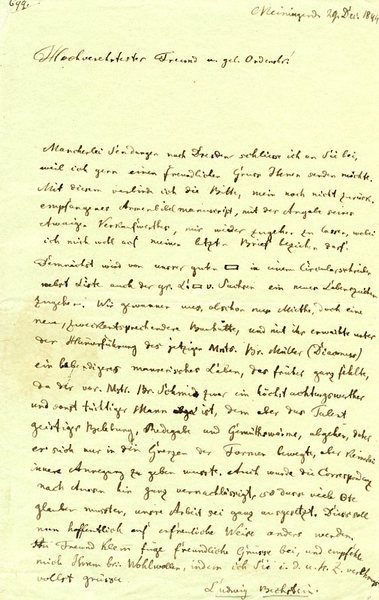 Meiningen d. 29. Dec. 1844
Hochverehrtester Freund u. gel. Ordensbr!
Mancherlei Sendungen nach Dresden schliesse ich an Sie bei,
weil ich gern einen freundlichen Gruss Ihnen senden möchte.
Mit diesem verbinde ich die Bitte, mein noch nicht zurück
empfangenes manuscript, mit der Angabe seines
etwaigen Verkaufwerthes, mir wieder zugehen zu lassen, wobei
ich mich wohl auf meinen letzten Brief beziehen darf.
Demnächst wird von unsrer guten ▭ in einem Circularschreiben
nebst Liste auch der gr. L▭ v. Sachsen ein neues Lebenszeichen
zugehen. Wir gewannen uns, schon nun Mühe, doch eine
neue, zweckentsprechendere Bauhütte, und mit ihr erwachte unter
der Hammerführung des jetzigen Mstr. Br. Müller (Diaconus)
ein lebendiges maurerisches Leben, das früher ganz fehlte,
da der vor. Mstr. Br. Schmid zwar ein höchst achtungswerther
und sonst tüchtiger Mann ist, dem aber das Talent
geistiger Belebung, Redegabe und Gemüthswärme, abgehen, daher
er sich nur in den Grenzen der Formen bewegt, aber keinerlei
innere Anregung zu geben wusste. Auch wurde die Correspondenz
nach Aussen hin ganz vernachlässigt, so dass viele Ote
glauben mussten, unsre Arbeit sei ganz ausgesetzt. Dies soll
nun hoffentlich auf erfreuliche Weise anders werden.
Freund Klein füge freundliche Grüsse bei, und empfehle
mich Ihrem Wohlwollen, indem ich Sie i. d. u. h. Z.
vollst grüsse
Ludwig Bechstein.